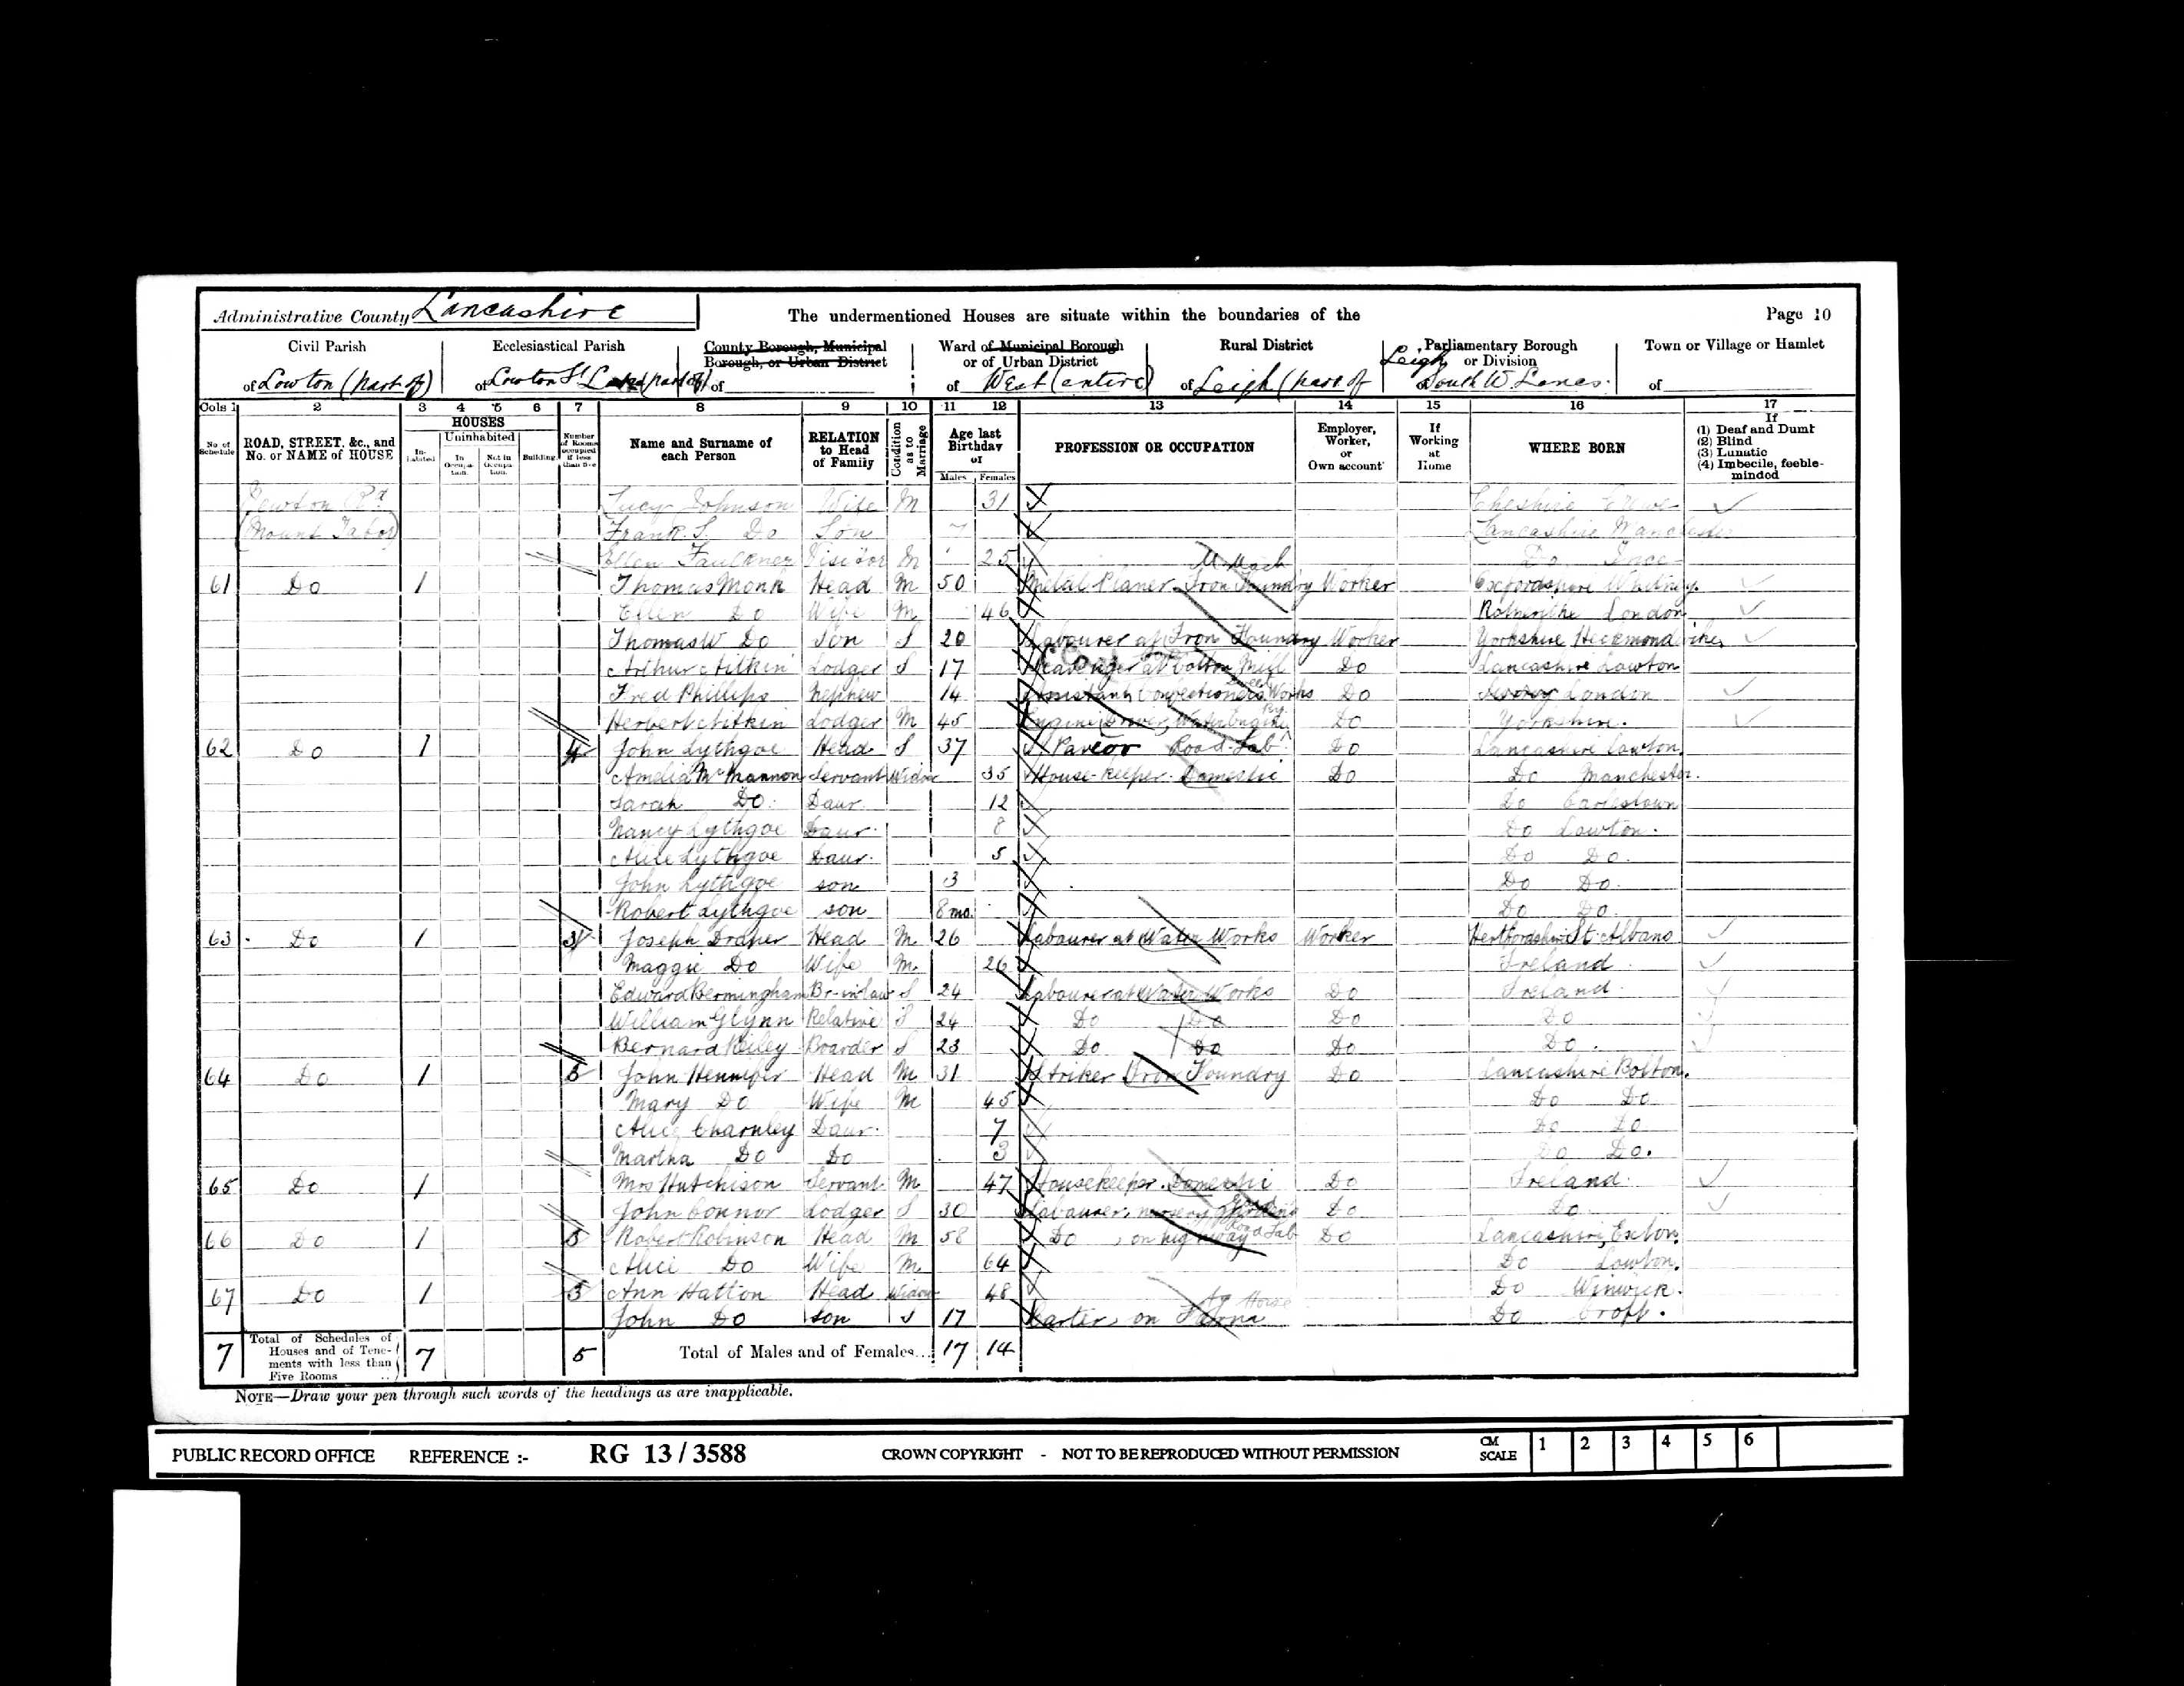 Administrative County Lancashire The undermentioned Houses are situate within the boundaries of the Page 10
Civil Parish Ecclesiastical Parish County Borough, Municipal Borough, or Urban District Ward of Municipal Borough or of Urban District Rural District Parliamentary Borough or Division Town or Village or Hamlet
of Lowton (part of) of Lowton St (part of) of of West (entire) of Leigh (part of Leigh South W Lancs. of
Cols 1 2 3 4 5 6 7 8 9 10 11 12 13 14 15 16 17
No. of Schedule ROAD, STREET, &c., and No. or NAME of HOUSE HOUSES Inhabited Uninhabited In Occupation. Not in Occupation. Building Number of Rooms occupied if less than five Name and Surname of each Person RELATION to Head of Family Condition as to Marriage Age last Birthday of Males Females PROFESSION OR OCCUPATION Employer, Worker, or Own account If Working at Home WHERE BORN If (1) Deaf and Dumb (2) Blind (3) Lunatic (4) Imbecile, feeble-minded
Newton Rd Lucy Johnson Wife M 31 Cheshire Crewe
(Mount Tabor) Frank. S. Do Son 7 Lancashire Manchester
Ellen Faulkner Visitor M 25 Do
61 Do 1 Thomas Monk Head M 50 Metal Planer Iron Foundry M. Mach Worker Oxfordshire Whitney.
Ellen Do Wife M 46 London
Thomas W Do Son S 20 Labourer at Iron Foundry Worker Yorkshire Heckmondwike
Arthur Aitkin Lodger S 17 Scavenger at Cotton Mill Do Lancashire Lowton
Fred Phillips Nephew 14 Assistant Confectioners Works Do London
Herbert Aitkin Lodger M 45 Engine Driver, Do Yorkshire.
62 Do 1 4 John Lythgoe Head S 37 Pavior Road Lab Do Lancashire Lowton.
Amelia McMannon Servant Widow 35 House-keeper. Domestic Do Do Manchester.
Sarah Do. Daur. 12 Do Earlestown
Nancy Lythgoe Daur. 8 Do Lowton.
Alice Lythgoe Daur. 5 Do Do.
John Lythgoe son 3 Do Do.
Robert Lythgoe son 8 mo. Do Do.
63 Do 1 3 Joseph Draper Head M 26 Labourer at Water Works Worker Hertfordshire St. Albans
Maggie Do Wife M. 26 Ireland.
Edward Bermingham Br-in-law S 24 Labourer at Water Works Do Ireland.
William Glynn Relative S 24 Do Do Do Do
Bernard Reiley Boarder S 23 Do Do Do Do.
64 Do 1 5 John Head M 31 Striker Iron Foundry Do Lancashire Bolton.
Mary Do Wife M 45 Do Do
Alice Charnley Daur. 7 Do Do
Martha Do Do 3 Do Do.
65 Do 1 Mrs Hutchison Servant M 47 Housekeeper. Domestic Do Ireland.
John Connor Lodger S 30 Labourer, nursery gardens Do Do
66 Do 1 5 Robert Robinson Head M 58 Do, on highway Road Lab Do Lancashire, Euxton.
Alice Do Wife M 64 Do Lowton.
67 Do 1 3 Ann Hatton Head Widow 48 Do Winwick.
John Do son S 17 Carter, on Farm Horse Do Croft.
7 Total of Schedules of Houses and of Tenements with less than Five Rooms 7 5 Total of Males and of Females... 17 14
NOTE—Draw your pen through such words of the headings as are inapplicable.
PUBLIC RECORD OFFICE REFERENCE :- RG 13 / 3588 CROWN COPYRIGHT - NOT TO BE REPRODUCED WITHOUT PERMISSION CM SCALE 1 2 3 4 5 6